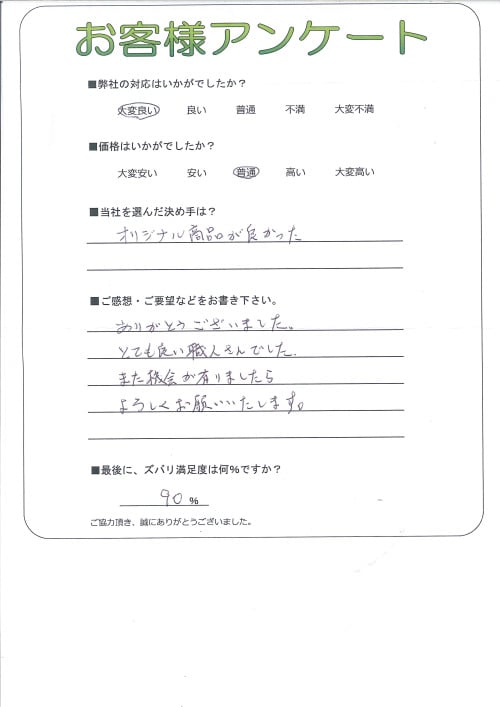 お客様アンケート
■弊社の対応はいかがでしたか？
大変良い 良い 普通 不満 大変不満
■価格はいかがでしたか？
大変安い 安い 普通 高い 大変高い
■当社を選んだ決め手は？
オリジナル商品が良かった
■ご感想・ご要望などをお書き下さい。
ありがとうございました。
とても良い職人さんでした.
また機会が有りましたら
よろしくお願いいたします。
■最後に、ズバリ満足度は何%ですか？
90 %
ご協力頂き、誠にありがとうございました。